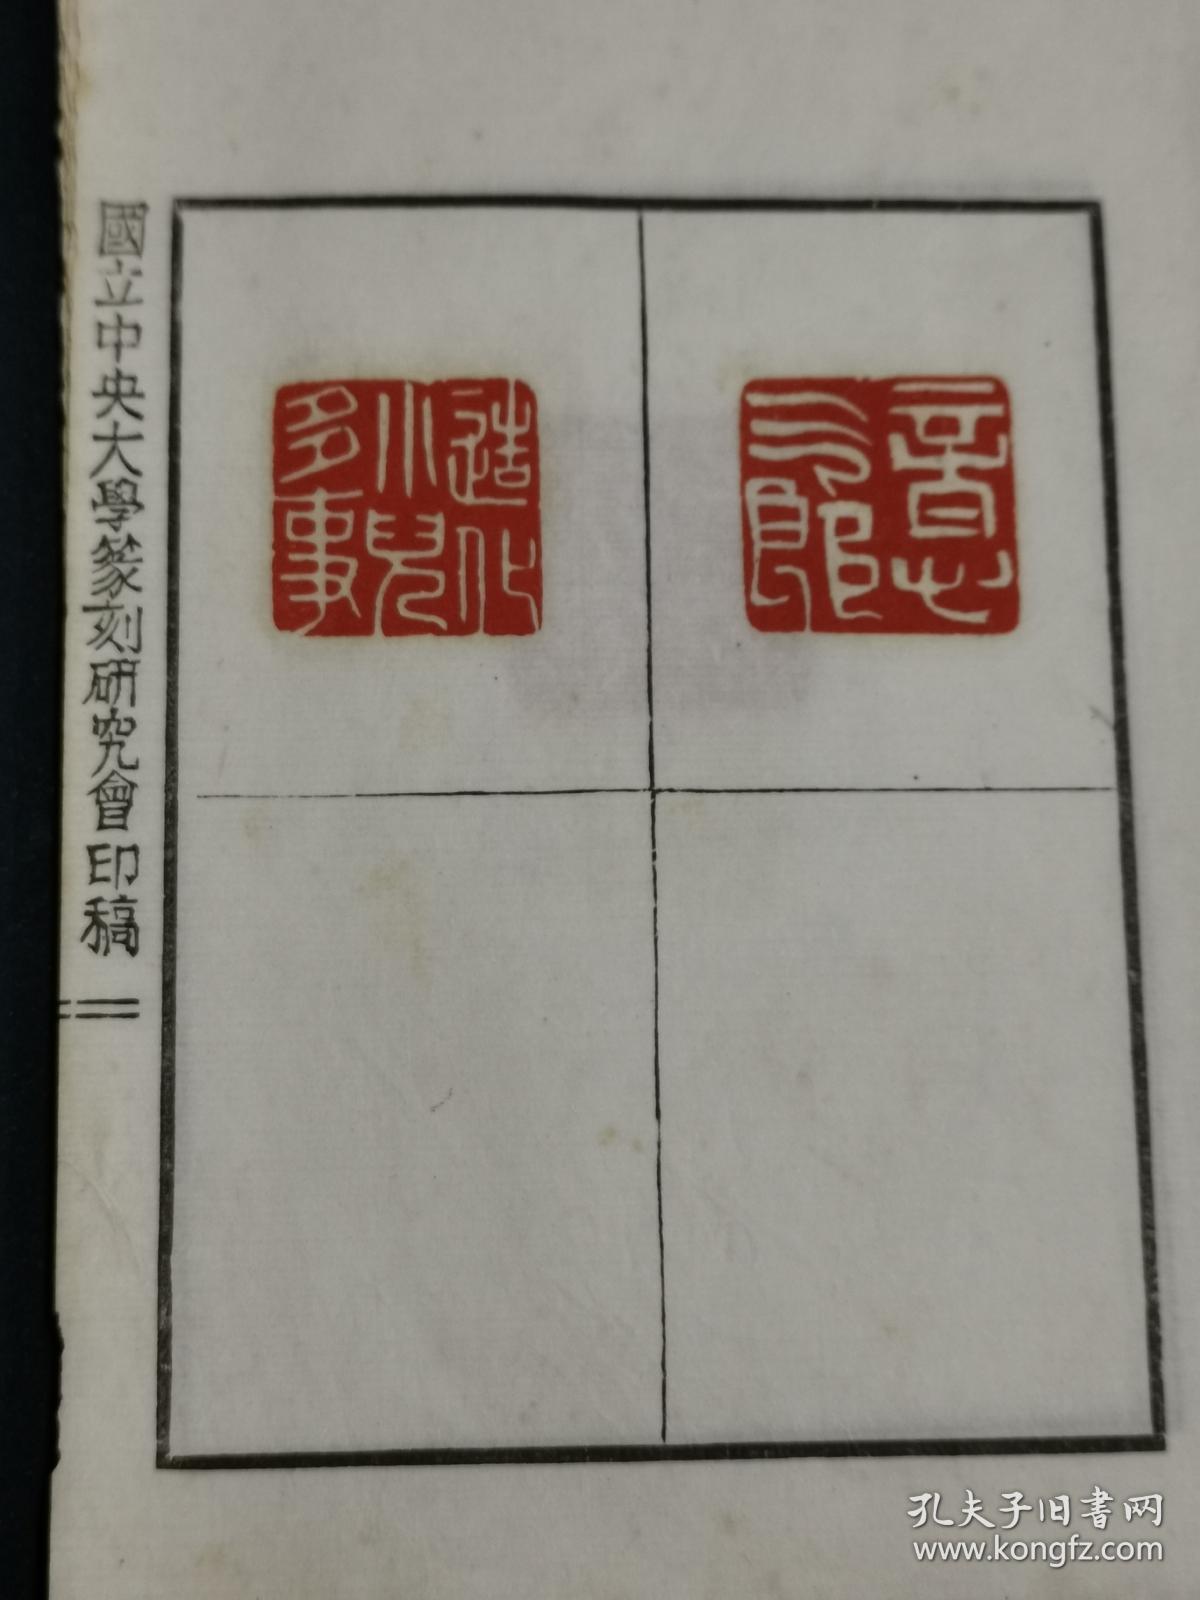 國立中央大學篆刻研究會印稿
意
三郎
造化
小兒
多事
孔夫子旧书网
www.kongfz.com